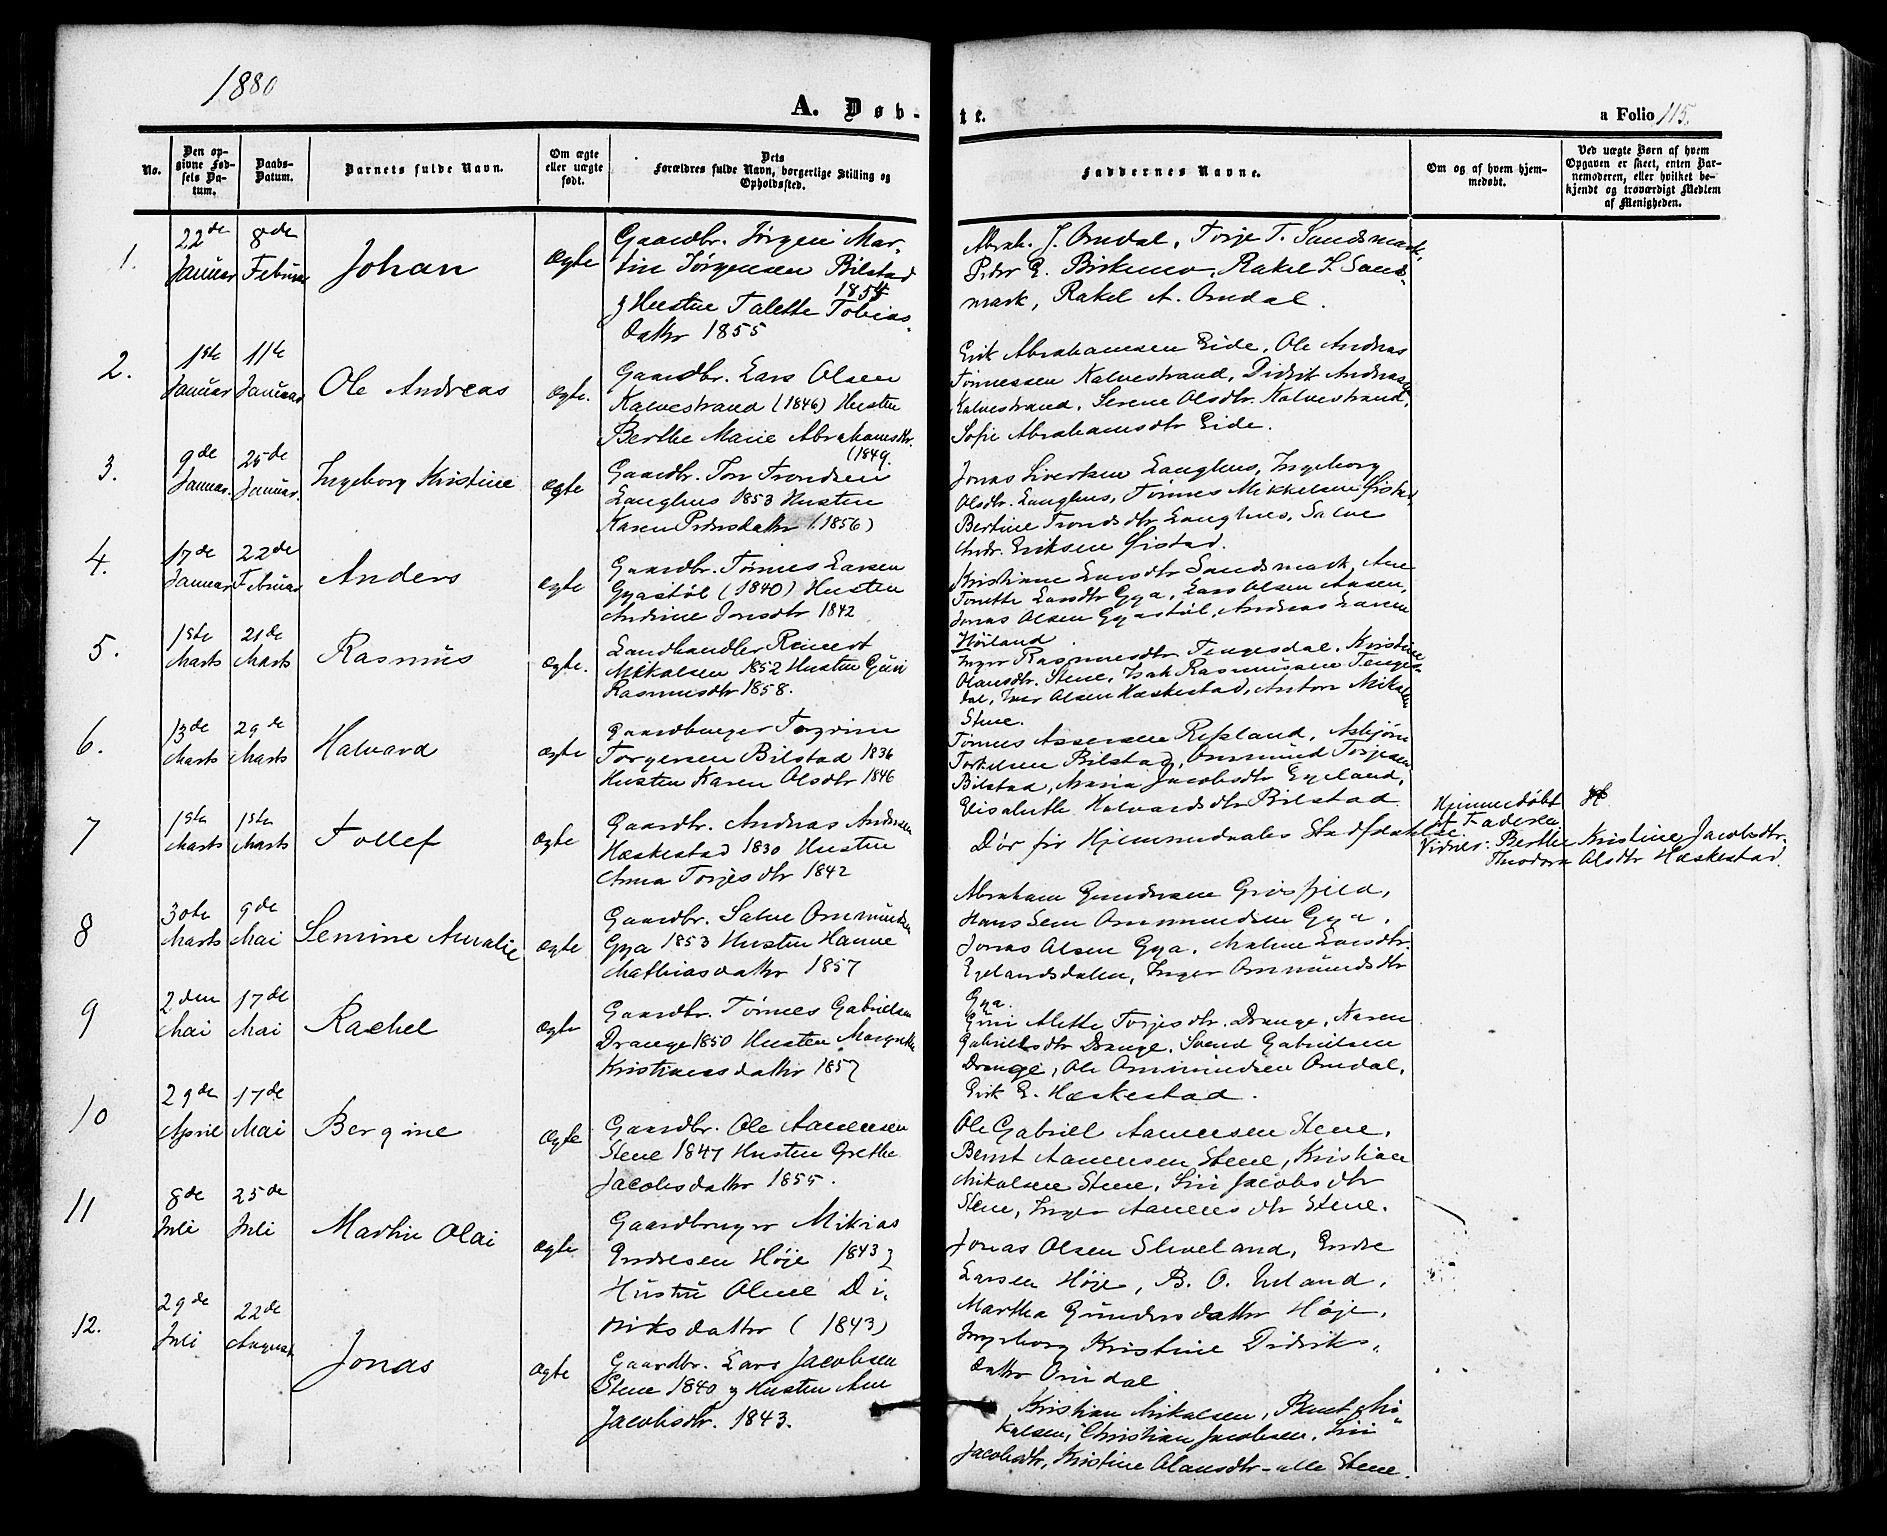 1880
A. Døbte.
a Folio 115.
No.
Den opgivne Fødsels Datum.
Daabs-Datum.
Barnets fulde Navn.
Om ægte eller uægte født.
Dets Forældres fulde Navn, borgerlige Stilling og Opholdssted.
Faddernes Navne.
Om og af hvem hjemmedøbt.
Ved uægte Børn af hvem Opgaven er skeet, enten Barnemoderen, eller hvilket bekjendt og troværdigt Medlem af Menigheden.
1.
22de Januar
8de Februar
Johan
Ægte
Gaardbr. Jørgen Mar-
tin Jørgensen Bilstad
1854
g Hustru Talette Tobias-
Datter 1855
Abrah. J. Omdal, Torje T. Sandsmark,
Peder E. Birkemo, Rakel T. Sands-
mark, Rakel A. Omdal.
2.
1ste Januar
11te Januar
Ole Andreas
Ægte.
Gaardbr. Lars Olsen
Kalvestrand (1846) Hustru
Berthe Marie Abrahamsdtr.
(1849.
Erik Abrahamsen Eide, Ole Andreas
Tønnessen Kalvestrand, Didrik Andreas
Kalvestrand, Serene Olsdtr. Kalvestrand,
Sofie Abrahamsdtr Eide.
3.
9de Januar.
25de Januar.
Ingeborg Kristine
Ægte
Gaardbr. Tron Trondsen
Langhus 1853 Hustru
Karen Pedersdatter (1856)
Jonas Sivertsen Langhus, Ingeborg
Olsdtr. Langhus, Tønnes Mikkelsen Øistad,
Bertine Trondsdtr Langhus, Salve
Andr. Eriksen Øistad.
4.
17de Januar
22de Februar
Anders
Ægte
Gaardbr. Tønnes Larsen
Gyastøl (1840) Hustru
Andrine Jonsdtr 1842
Kristiane Larsdtr Sandsmark, Ane
Tonette Larsdtr Gya, Lars Olsen Aasen,
Jonas Olsen Gyastøl, Andreas Larsen
Høiland.
5.
1ste Marts
21de Marts
Rasmus
Ægte.
Landhandler Reinert
Mikkalsen 1852 Hustru Guri
Rasmusdtr 1858.
Inger Rasmusdtr Tengesdal, Kristine
Olausdtr. Stene, Isak Rasmussen Tenges-
dal, Iver Olsen Hæskestad, Anton Mikalsen
Stene.
6.
13de Marts
29de Marts
Halvard
Ægte
Gaardbruger Torgrim
Torgersen Bilstad 1836
Hustru Karen Olsdtr 1846
Tønnes Assersen Repland, Asbjørn
Torkelsen Bilstad, Ommund Torjesen
Bilstad, Maria Jacobsdtr Eyeland,
Elisabeth Halvardsdtr Bilstad
7
1ste Marts
1ste Marts
Tollef
Ægte
Gaardbr. Andreas Andersen
Hæskestad 1830 Hustru
Anna Torjesdtr 1842
Død før Hjemmedaabs Stadfæstelse.
Hjemmedøbt
af Faderen
Vidner: Berthe Kristine Jacobsdtr.
Theodora Olsdtr Hæskestad.
8
30te Marts
9de Mai
Semine Amalie
Ægte
Gaardbr. Salve Ommundsen
Gya 1853 Hustru Hanne
Mathiasdatter 1857
Abraham Gundersen Grøsfjeld,
Hans Sem Ommundsen Gya,
Jonas Olsen Gya, Malene Larsdtr.
Egelandsdalen, Inger Ommundsdtr
Gya.
9
2den Mai
17de Mai
Rachel
Ægte
Gaardbr. Tønnes Gabrielsen
Drange 1850 Hustru Margrethe
Kristiansdatter 1857
Guri Alette Torjesdtr. Drange, Karen
Gabrielsdtr Drange, Svend Gabrielsen
Drange, Ole Ommundsen Omdal,
Erik E. Hæskestad.
10
29de April
17de Mai
Bergine
Ægte
Gaardbr. Ole Aanensen
Stene 1847 Hustru Grethe
Jacobsdatter 1855.
Ole Gabriel Aanensen Stene,
Bernt Aanensen Stene, Kristian
Mikalsen Stene, Siri Jacobsdtr
Stene, Inger Aanensdtr Stene.
11
8de Juli
25de Juli
Martin Olai
Ægte
Gaardbruger Mikias
Endresen Høje 1843
Hustru Olene Di-
riksdatter (1843)
Jonas Olsen Sleveland, Endre
Larsen Høje, B. O. Urland,
Martha Gundersdatter Høje,
Ingeborg Kristine Didriks-
datter Omdal
12.
29de Juli
22de August
Jonas
Ægte
Gaardbr. Lars Jacobsen
Stene 1840 g Hustru Ane
Jacobsdtr. 1843.
Kristian Mikalsen, Bernt Mi-
kalsen, Christian Jacobsen, Siri
Jacobsdtr, Kristine Olausdtr - alle Stene.